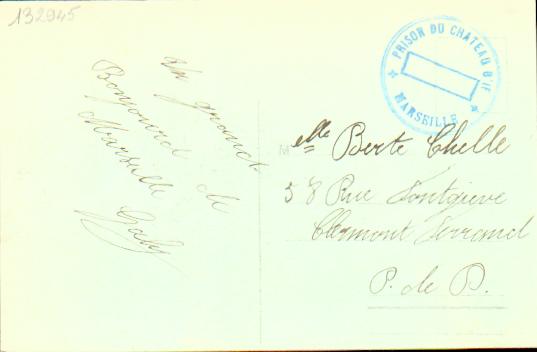 132945
un grand
Bonjour de
Marseille
Gaby
PRISON DU CHATEAU D'IF
MARSEILLE
Melle Berte Chelle
58 Rue Fontgieve
Clermont Ferrand
P. de D.